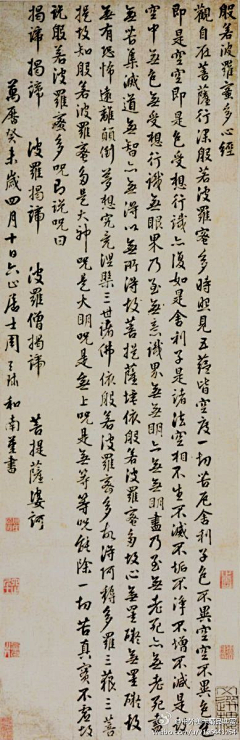 般若波羅蜜多心經
觀自在菩薩行深般若波羅蜜多時照見五蘊皆空度一切苦厄舍利子色不異空空不異色色
即是空空即是色受想行識亦復如是舍利子是諸法空相不生不滅不垢不淨不增不減是
空中無色無受想行識無眼界乃至無意識界無無明亦無無明盡乃至無老死亦無老死
無苦集滅道無智亦無得以無所得故菩提薩埵依般若波羅蜜多故心無罣礙無罣礙故
無有恐怖遠離顛倒夢想究竟涅槃三世諸佛依般若波羅蜜多故得阿耨多羅三藐三菩
提故知般若波羅蜜多是大神咒是大明咒是無上咒是無等等咒能除一切苦真實不虛故
說般若波羅蜜多咒即說咒曰
揭諦揭諦 波羅揭諦 波羅僧揭諦 菩提薩婆訶
萬曆癸未歲四月十日六止居士周天球和南謹書